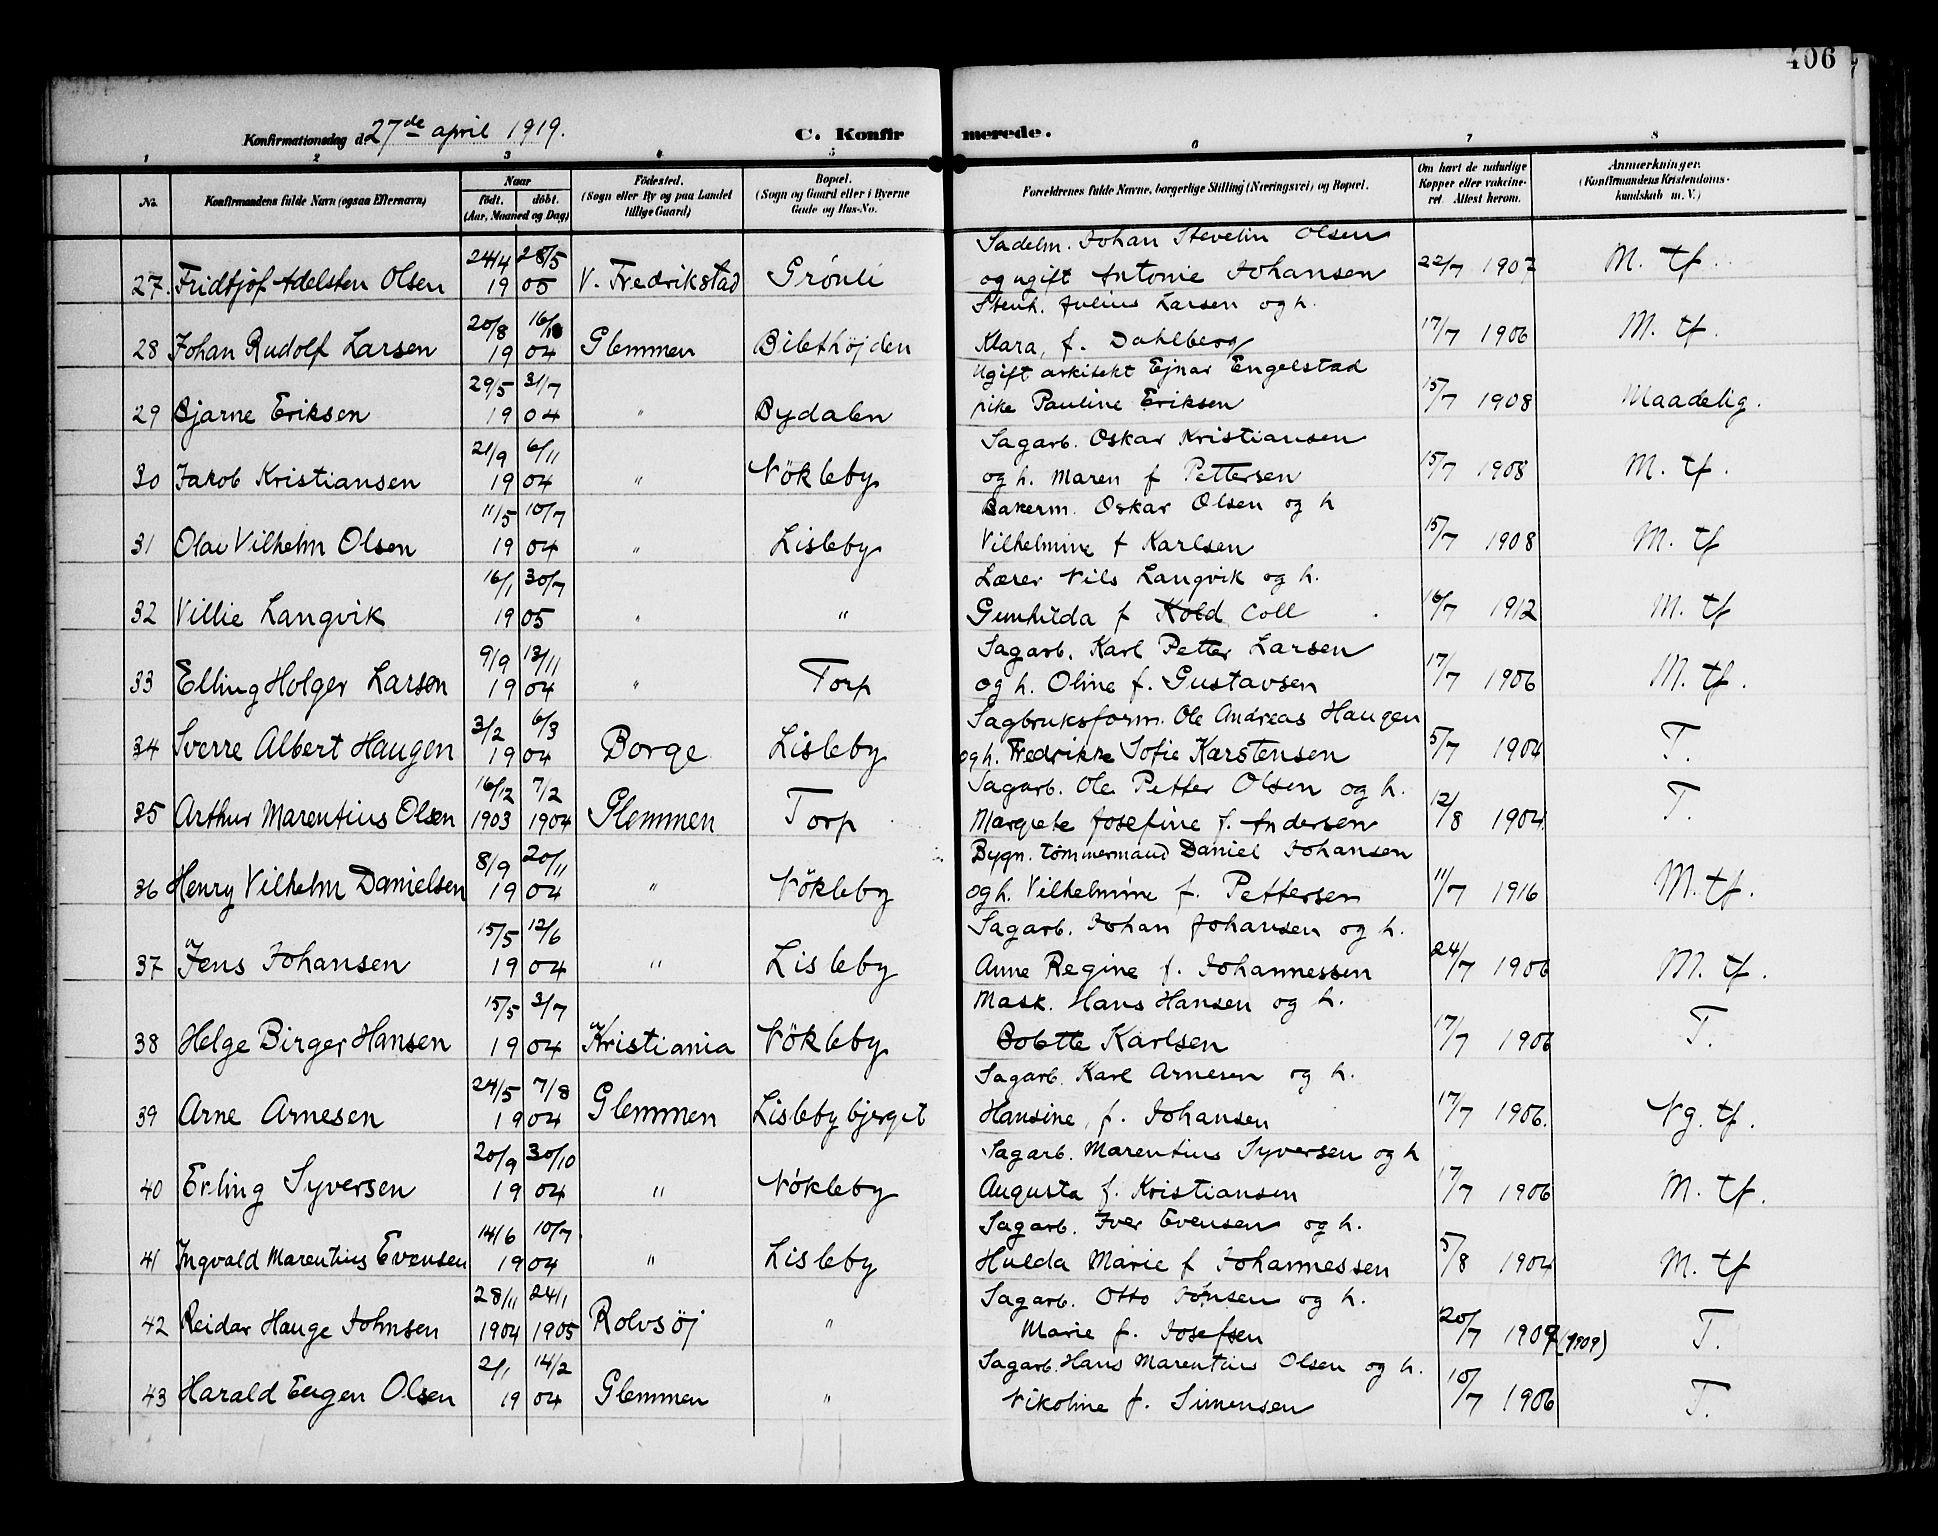 406
Konfirmationsdag d. 27de april 1919. C. Konfirmerede.
1 2 3 4 5 6 7 8
No. Konfirmandens fulde Navn (ogsaa Efternavn) Naar født. døbt. (Aar, Maaned og Dag) Fødested. (Sogn eller By og paa Landet tillige Gaard) Bopæl. (Sogn og Gaard eller i Byerne Gade og Hus-No. Forældrenes fulde Navne, borgerlige Stilling (Næringsvei) og Bopæl. Om havt de naturlige Kopper eller vakcineret. Attest herom. Anmærkninger. (Konfirmandens Kristendomskundskab m. V.)
24/4 28/5 Sadelm. Johan Stevelin Olsen
27. Fridtjof Adelsten Olsen 19 05 V. Fredrikstad Grönli og ugift Antonie Johansen 22/7 1907 M. tf.
20/8 16/10 Stenh. Julius Larsen og h.
28 Johan Rudolf Larsen 19 04 Glemmen Bilethöjden Klara, f. Dahlberg 17/7 1906 M. tf.
29/5 31/7 Ugift arkitekt Ejnar Engelstad
29 Bjarne Eriksen 19 04 " Bydalen pike Pauline Eriksen 15/7 1908 Maadelig.
21/9 6/11 Sagarb. Oskar Kristiansen
30 Jakob Kristiansen 19 04 " Nökleby og h. Maren f Pettersen 15/7 1908 M. tf.
11/5 10/7 Bakerm. Oskar Olsen og h
31 Olav Vilhelm Olsen 19 04 " Lisleby Vilhelmine f Karlsen 15/7 1908 M. tf
16/1 30/7 Lærer Nils Langvik og h.
32 Villie Langvik 19 05 " " Gunhilda f Kold Coll 16/7 1912 M. tf
9/9 13/11 Sagarb. Karl Petter Larsen
33 Elling Holger Larsen 19 04 " Torp og h. Oline f. Gustavsen 17/7 1906 M. tf.
3/2 6/3 Sagbruksform. Ole Andreas Haugen
34 Sverre Albert Haugen 19 04 Borge Lisleby og h. Fredrikke Sofie Karstensen 5/7 1904 T.
16/12 7/2 Sagarb. Ole Petter Olsen og h.
35 Arthur Marentius Olsen 1903 1904 Glemmen Torp Margrete Josefine f. Andersen 12/8 1904 T.
8/9 20/11 Bygn. tömmermand Daniel Johansen
36 Henry Vilhelm Danielsen 19 04 " Nökleby og h. Vilhelmine f. Pettersen 11/7 1916 M. tf.
15/5 12/6 Sagarb. Johan Johansen og h.
37 Jens Johansen 19 04 " Lisleby Anne Regine f. Johannessen 24/7 1906 M. tf.
15/5 3/7 Mask. Hans Hansen og h.
38 Helge Birger Hansen 19 04 Kristiania Nökleby Bolette Karlsen 17/7 1906 T.
24/5 7/8 Sagarb. Karl Arnesen og h.
39 Arne Arnesen 19 04 Glemmen Lislebybjerget Hansine, f. Johansen 17/7 1906. Ng. tf.
20/9 30/10 Sagarb. Marentius Syversen og h
40 Erling Syversen 19 04 " Nökleby Augusta f. Kristiansen 17/7 1906 M. tf.
14/6 10/7 Sagarb. Iver Evensen og h.
41 Ingvald Marentius Evensen 19 04 " Lisleby Hulda Marie f Johannessen 5/8 1904 M. tf
28/11 24/1 Sagarb. Otto Jonsen og h.
42 Reidar Hauge Johnsen 1904 1905 Rolvsöj " Marie f. Josefsen 20/7 1909 (1909) T.
2/1 14/2 Sagarb. Hans Marentius Olsen og h.
43 Harald Eugen Olsen 19 04 Glemmen " Nikoline f. Simensen 10/7 1906 T.